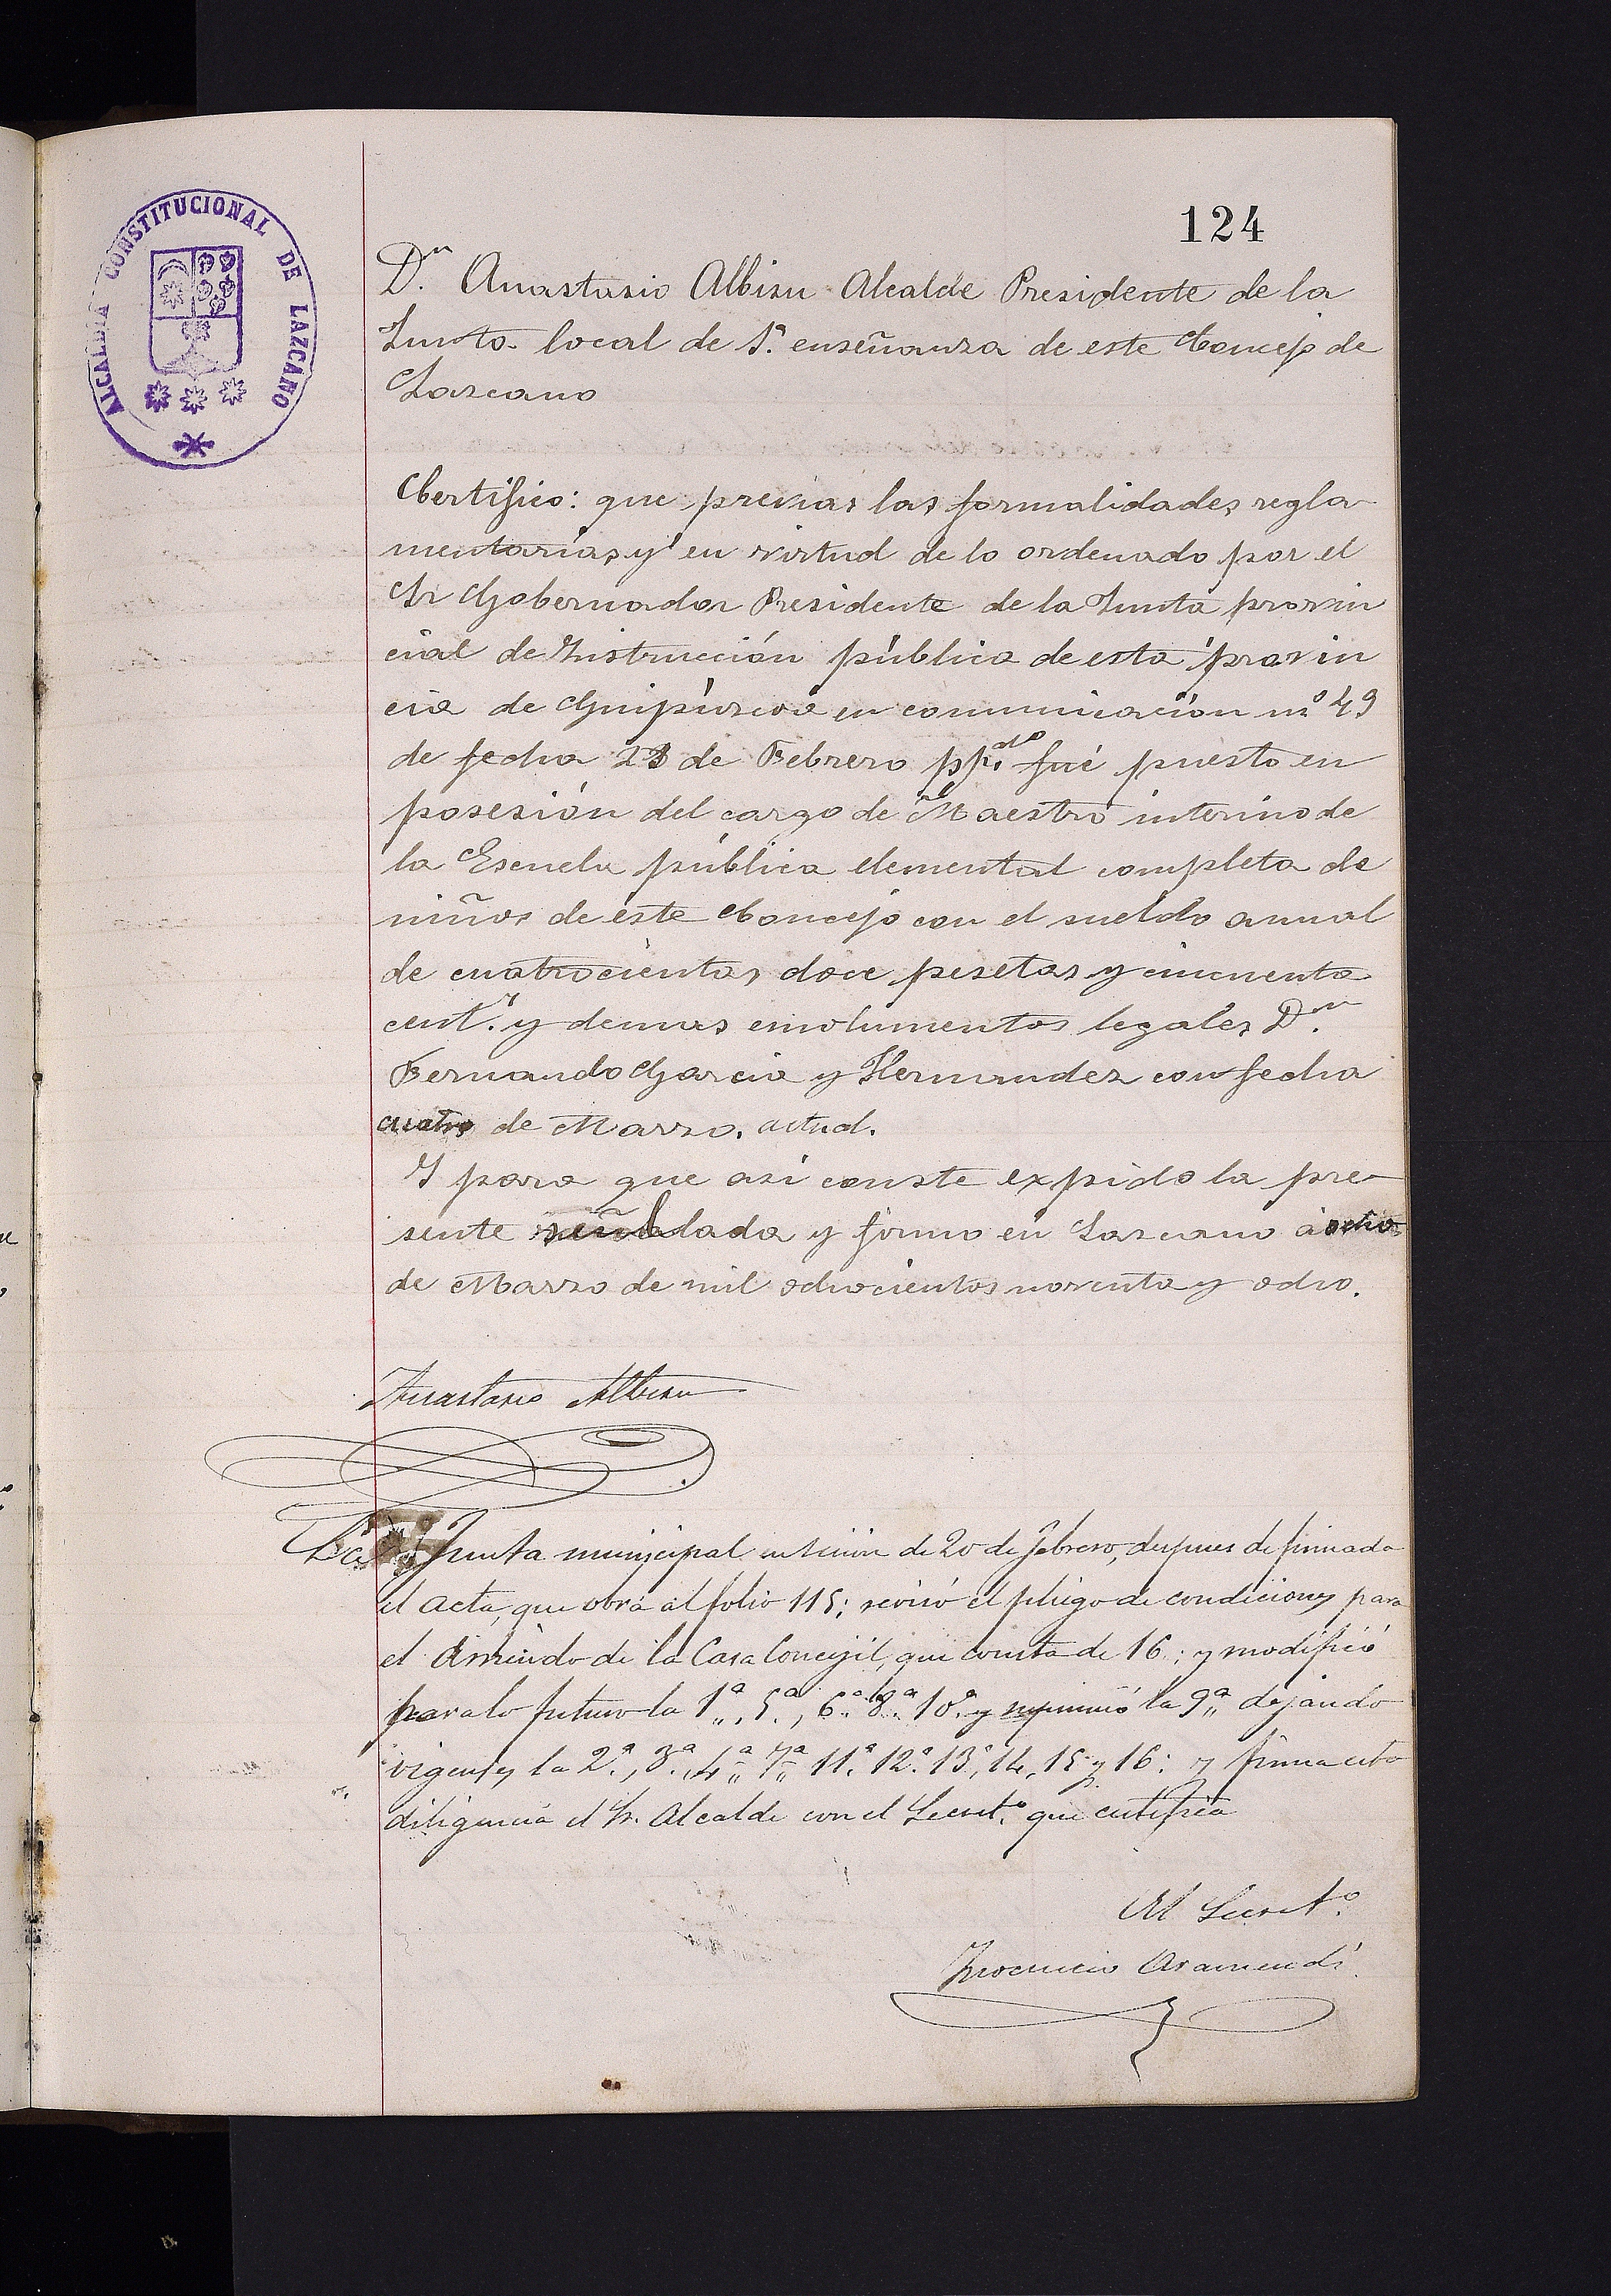 124
ALCALDIA CONSTITUCIONAL DE LAZCANO
Dn. Anastasio Albisu Alcalde Presidente de la
Junta local de 1ª. enseñanza de este Concejo de
Lazcano
Certifico: que previas las formalidades regla
mentarias, y en virtud de lo ordenado por el
Sr Gobernador Presidente de la Junta provin
cial de Instrucción pública de esta provin
cia de Guipúzcoa en comunicación nº 49
de fecha 23 de Febrero pp.do fué puesto en
posesión del cargo de Maestro interino de
la Escuela pública elemental completa de
niños de este Concejo con el sueldo anual
de cuatrocientas doce pesetas y cincuenta
cent.s y demas emolumentos legales Dn.
Fernando Garcia y Hernandez con fecha
cuatro de Marzo. actual.
Y para que asi conste expido la pre
sente y firmo en Lazcano á ocho
de Marzo de mil ochocientos noventa y ocho.
Anastasio Albisu
La Junta municipal en sesion de 20 de febrero, despues de firmada
el acta, que obra al folio 115; revisó el pliego de condiciones para
el Arriendo de la Casa Concejil, que consta de 16; y modificó
para lo futuro la 1ª, 5ª, 6ª. 8ª. 10ª. y suprimió la 9ª dejando
vigentes la 2ª, 3ª, 4ª 7ª 11ª 12ª 13ª, 14, 15 y 16: y firma esta
diligencia el Sr. Alcalde con el Secret.º que certifica
El Secret.º
Inocencio Aramendi